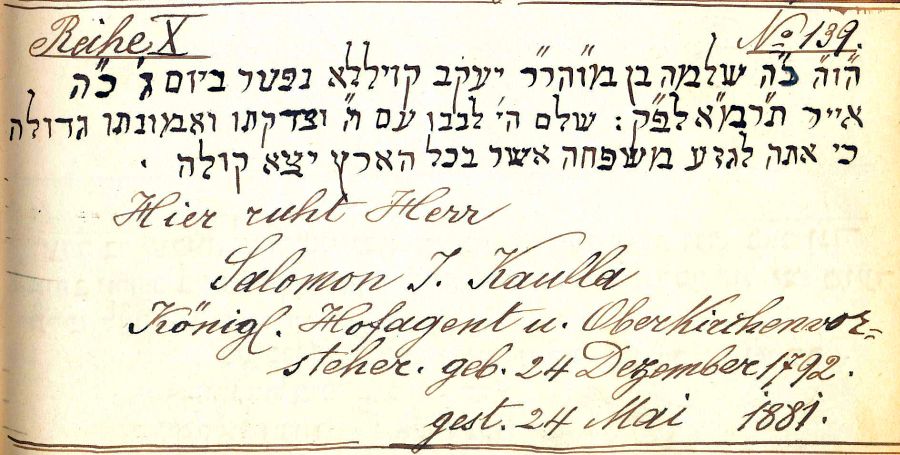 Reihe X No 139.
ה"ו"ה כ"ה שלמה בן כמו"הר"ר יעקב קויללא נפטר ביום ג' כ"ה
אייר ת"רמ"א לפ"ק: שלם הי' לבבו עם ה' וצדקתו ואמונתו גדולה
כי אתה לגזע משפחה אשר בכל הארץ יצא קולה .
Hier ruht Herr
Salomon J. Kaulla
Königl. Hofagent u. Oberkirchenvor=
steher. geb. 24 Dezember 1792.
gest. 24 Mai 1881.